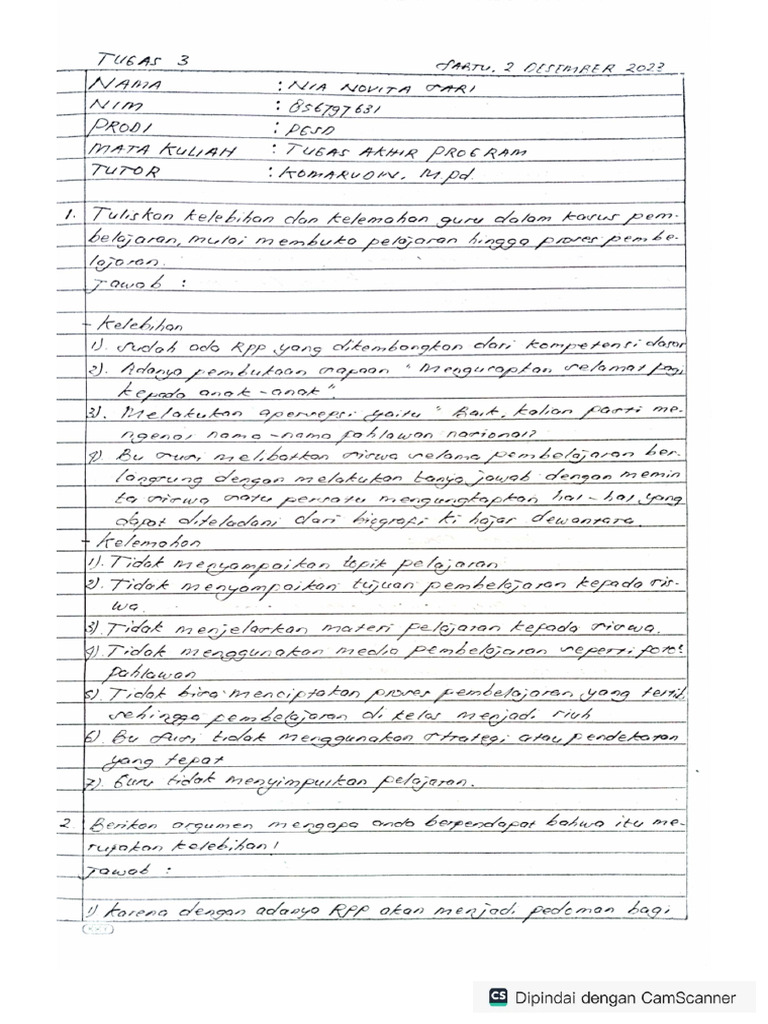 TUGAS 3 SABTU, 2 DESEMBER 2023
NAMA : NIA NOVITA SARI
NIM : 856797631
PRODI : PGSD
MATA KULIAH : TUGAS AKHIR PROGRAM
TUTOR : KOMARUDIN, M.Pd.
1. Tuliskan kelebihan dan kelemahan guru dalam kasus pem-
belajaran, mulai membuka pelajaran hingga proses pembe-
lajaran.
Jawab :
- Kelebihan
1). Sudah ada RPP yang dikembangkan dari kompetensi dasar
2). Adanya pembukaan sapaan "Mengucapkan selamat pagi
kepada anak-anak".
3). Melakukan apersepsi yaitu "Baik, kalian pasti me-
ngenal nama-nama pahlawan nasional?
4) Bu Susi melibatkan siswa selama pembelajaran ber-
langsung dengan melakukan tanya jawab dengan memin
ta siswa satu persatu mengungkapkan hal-hal yang
dapat diteladani dari biografi Ki hajar dewantara.
- Kelemahan
1). Tidak menyampaikan topik pelajaran
2). Tidak menyampaikan tujuan pembelajaran kepada sis-
wa.
3). Tidak menjelaskan materi pelajaran kepada siswa.
4). Tidak menggunakan media pembelajaran seperti foto2
pahlawan
5). Tidak bisa menciptakan proses pembelajaran yang tertib,
sehingga pembelajaran di kelas menjadi riuh
6). Bu Susi tidak menggunakan strategi atau pendekatan
yang tepat
7). Guru tidak menyimpulkan pelajaran.
2. Berikan argumen mengapa anda berpendapat bahwa itu me-
rupakan kelebihan!
Jawab :
1) Karena dengan adanya RPP akan menjadi pedoman bagi
CS Dipindai dengan CamScanner